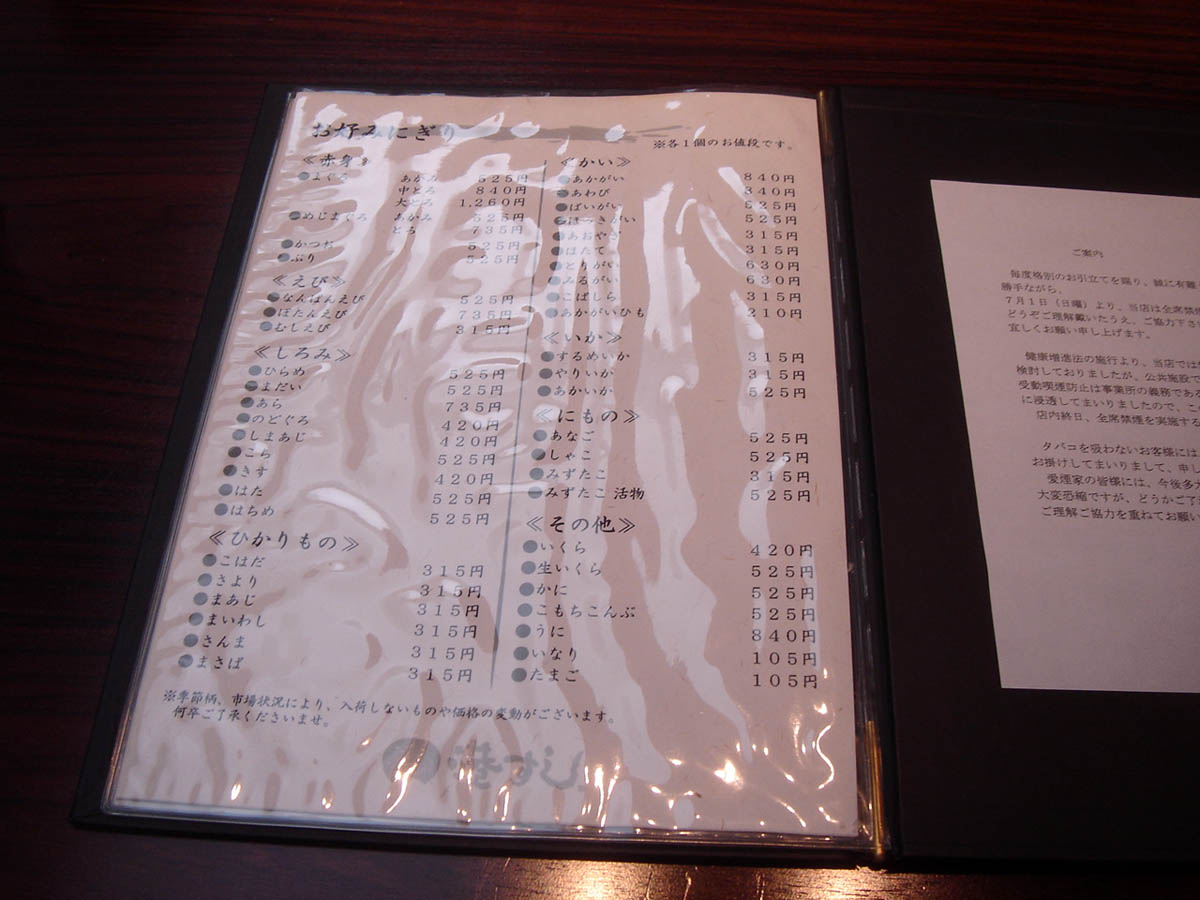 お好みにぎり
※各1個のお値段です。
≪赤身≫
●まぐろ あかみ 525円
中とろ 840円
大とろ 1,260円
●めじまぐろ あかみ 525円
とろ 735円
●かつお 525円
●ぶり 525円
≪えび≫
●なんばんえび 525円
●ぼたんえび 735円
●むしえび 315円
≪しろみ≫
●ひらめ 525円
●まだい 525円
●あら 735円
●のどぐろ 420円
●しまあじ 420円
●こち 525円
●きす 420円
●はた 525円
●はちめ 525円
≪ひかりもの≫
●こはだ 315円
●さより 315円
●まあじ 315円
●まいわし 315円
●さんま 315円
●まさば 315円
≪かい≫
●あかがい 840円
●あわび 840円
●ばいがい 525円
●ほっきがい 525円
●あおやぎ 315円
●ほたて 315円
●とりがい 630円
●みるがい 630円
●こばしら 315円
●あかがいひも 210円
≪いか≫
●するめいか 315円
●やりいか 315円
●あかいか 525円
≪にもの≫
●あなご 525円
●しゃこ 525円
●みずたこ 315円
●みずたこ 活物 525円
≪その他≫
●いくら 420円
●生いくら 525円
●かに 525円
●こもちこんぶ 525円
●うに 840円
●いなり 105円
●たまご 105円
※季節柄、市場状況により、入荷しないものや価格の変動がございます。
何卒ご了承くださいませ。
港すし
ご案内
毎度格別のお引立てを賜り、誠に有難
勝手ながら、
7月1日（日曜）より、当店は全席禁煙
どうぞご理解戴いたうえ、ご協力下さ
宜しくお願い申し上げます。
健康増進法の施行より、当店では
検討しておりましたが、公共施設で
受動喫煙防止は事業所の義務である
に浸透してまいりましたので、こ
店内終日、全席禁煙を実施する
タバコを吸わないお客様には
お掛けしてまいりまして、申し
愛煙家の皆様には、今後多大
大変恐縮ですが、どうかご了
ご理解ご協力を重ねてお願い